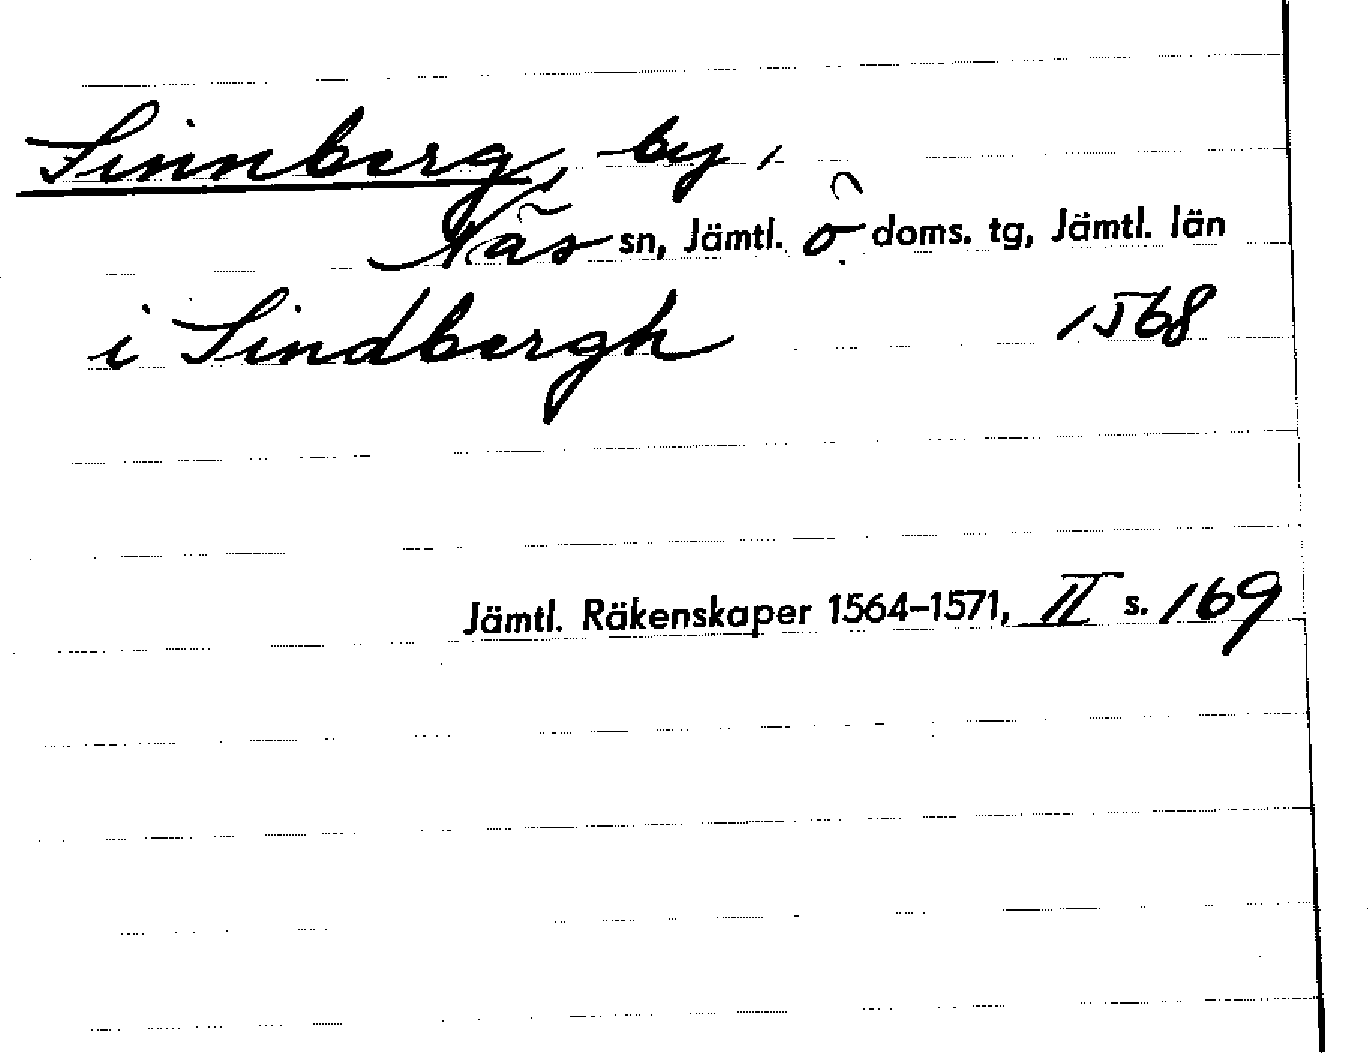 Sinnberg, by,
Näs sn, Jämtl. ö doms. tg, Jämtl. län
i Sindbergh 1568
Jämtl. Räkenskaper 1564–1571, II s. 169